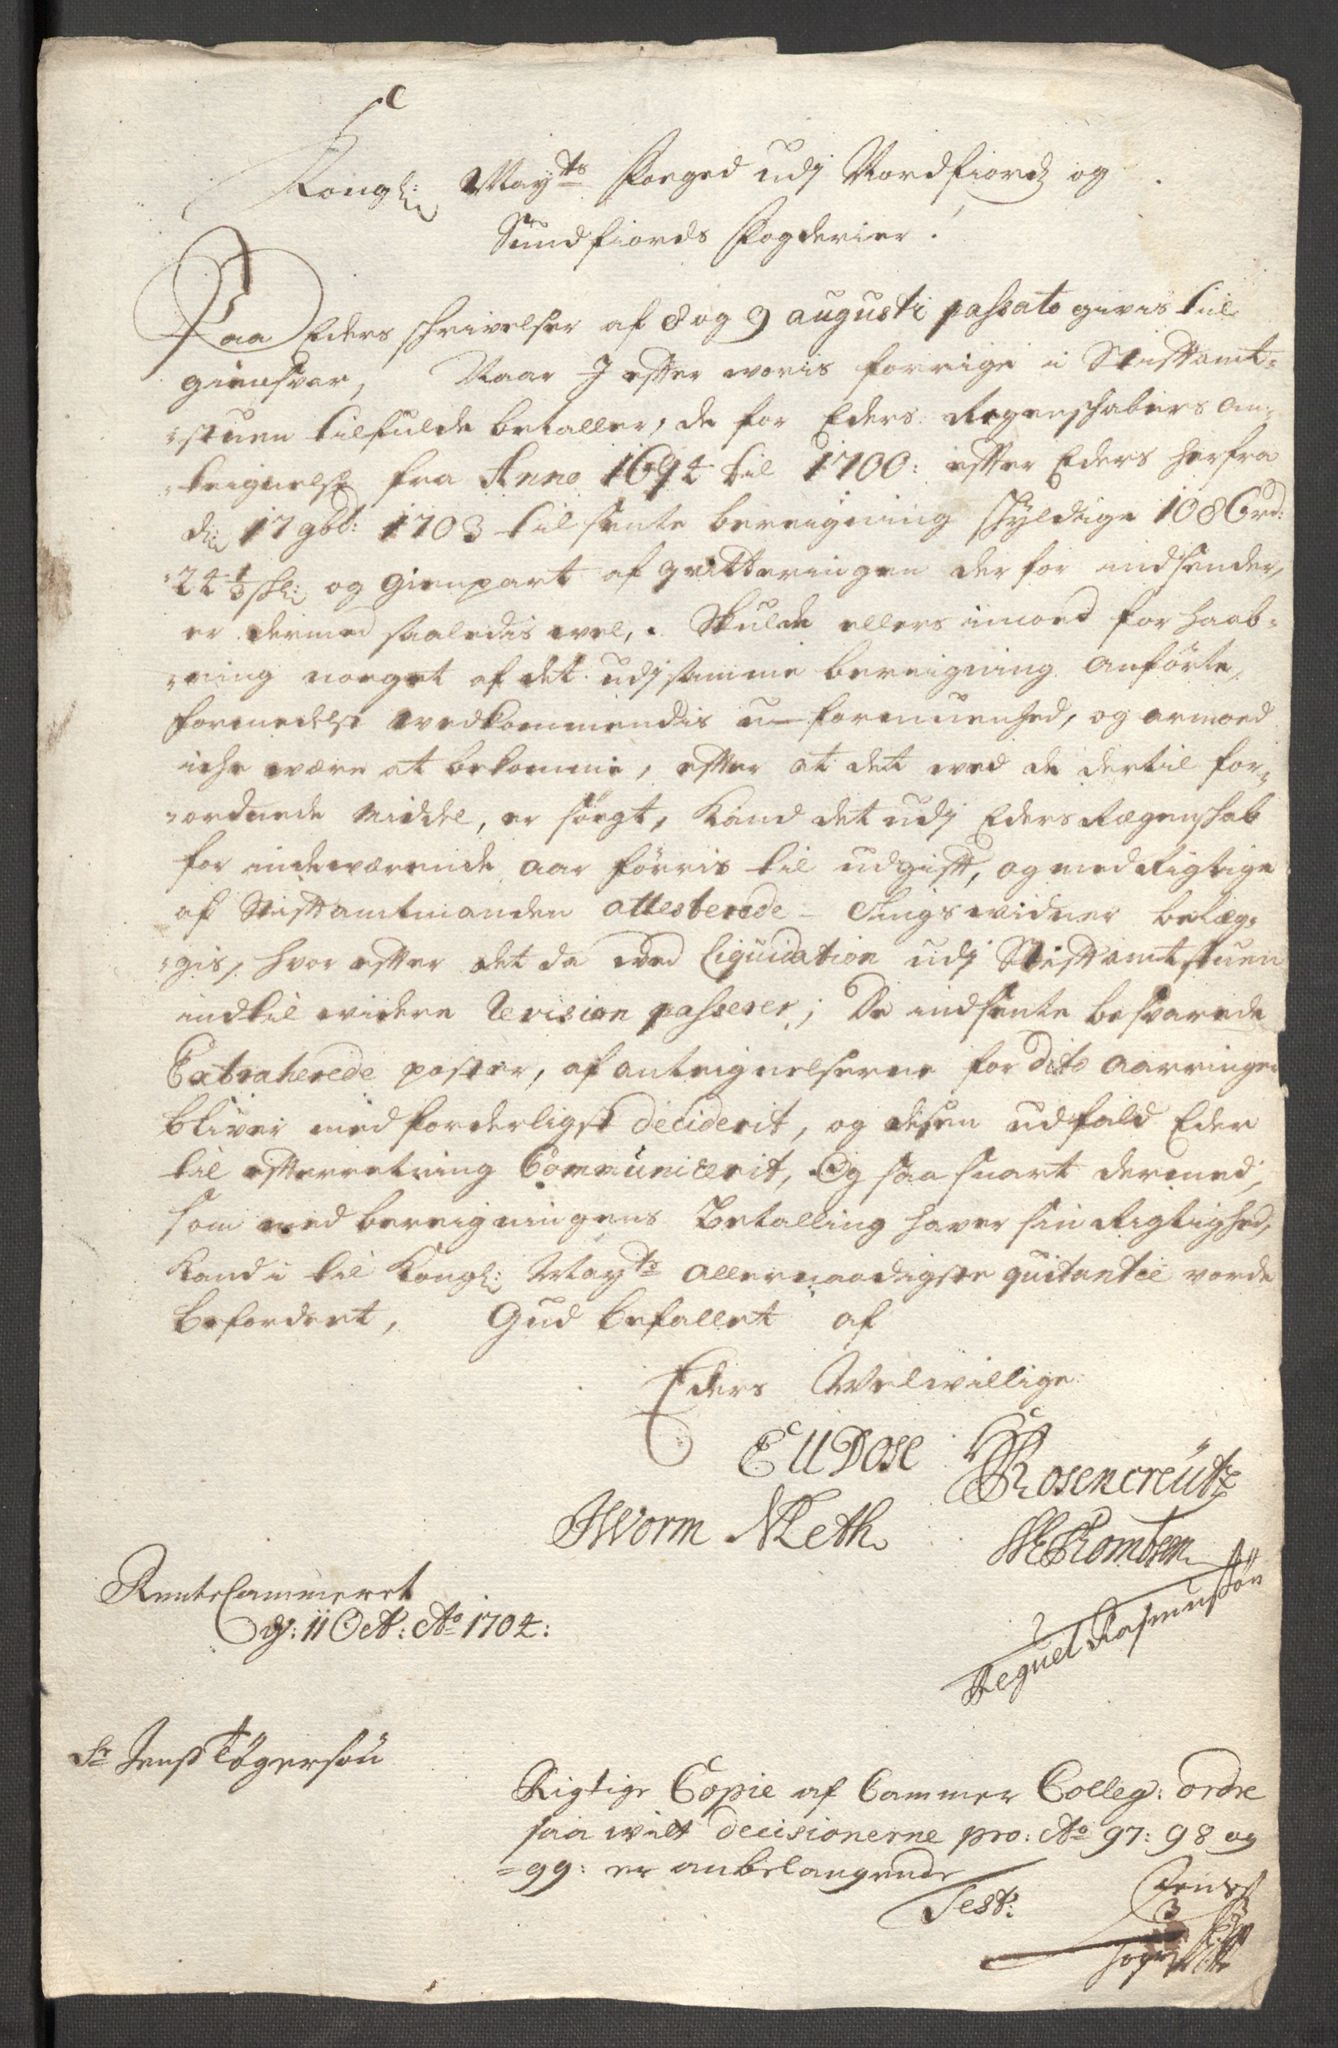 Kongl: May:ts Foeged udj Nordfiords og
Sundfiords Fogderier.
Paa Eders schrivelser af 8 og 9 augusti passato givis til
giensvar, Naar J efter voris forrige i Stiftamt-
stuen tilfulde betaller, de for Eders Regenschabers an-
teignelse fra Anno 1694 til 1700: efter Eders herfra
d: 17 9bb: 1703 tilsente bereigning schyldige 1086 rd:
24 1/3 sk: og gienpart af qvitteringen derfor indsender,
er dermed saaledis vel, Skulde ellers imod forhaab-
ning noeget af det udj samme bereigning anførte,
formedelst vedkommendis u-formuenhed, og armoed
iche være at bekomme, efter at det ved de dertil for-
ordnede middel, er søegt, kand det udj Eders Regenschab
for indeværende aar føris til udgift, og med Rigtige
af Stiftamtmanden attesterede Tingsvidner belæg-
gis, hvor efter det da ved liquidation udj Stiftamtstuen
indtil videre Revision passerer; De indsente besvarede
Extraherede poster, af anteignelserne for dito aarringer
bliver med forderligst deciderit, og desen udfald Eder
til efterretning Communicerit, Og saa snart dermed,
som med bereigningens Betalling haver sin Rigtighed,
kand i til Kongl: May:ts allernaadigste quitantie vorde
befordert, Gud befallet af
Eders Velvillige
C U Dose Rosencreütz
JWorm Meth Romben
Seguel Rasmussøn
RenteCammeret
d: 11 Oct: Ao 1704:
Sr Jens Tøgersøn
Rigtige Copie af Cammer Colleg: ordre
saa vit decisionerne pro: Ao 97: 98 og
99: er anbelangende
Test:
Jens